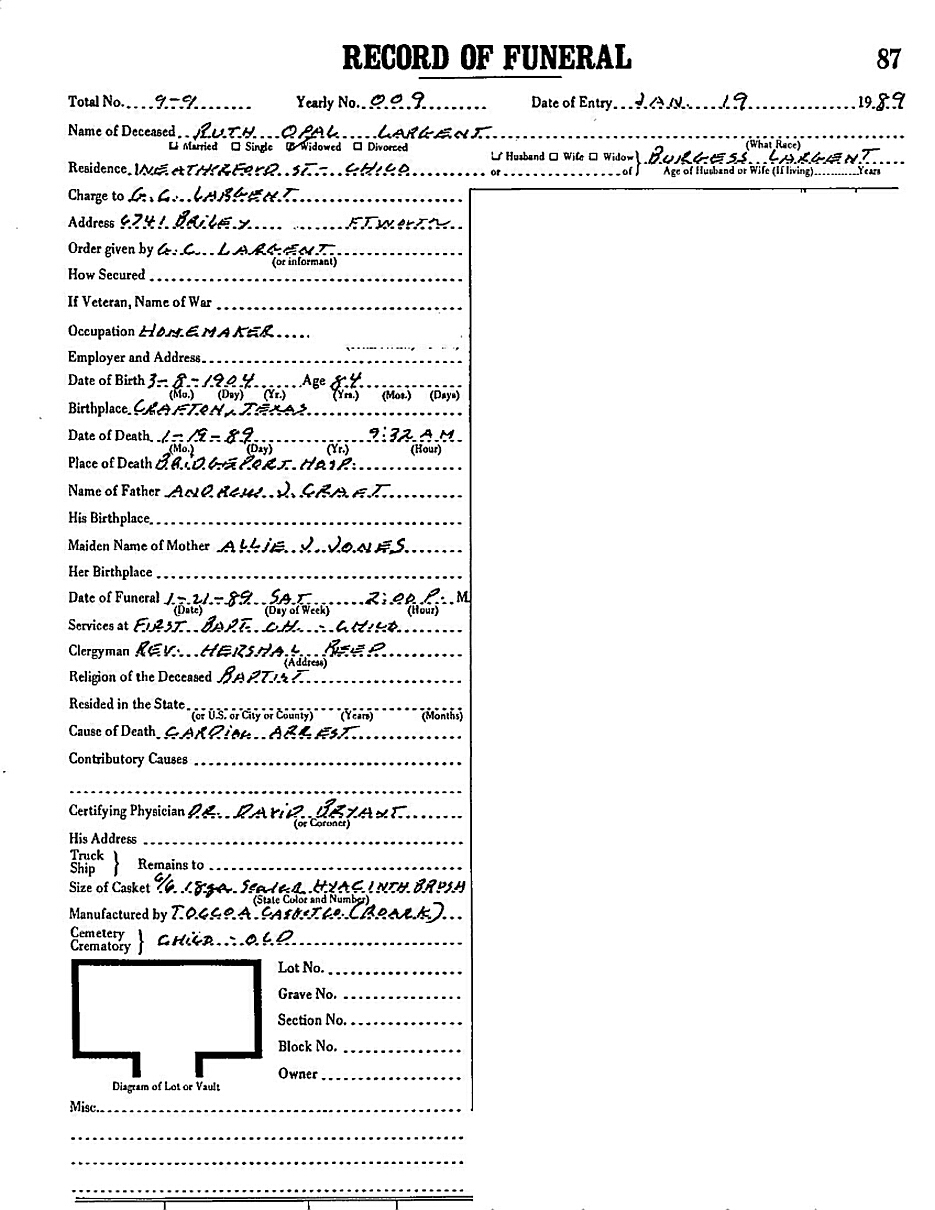 RECORD OF FUNERAL 87
Total No. 9-9 Yearly No. 009 Date of Entry JAN. 19 1989
Name of Deceased RUTH OPAL LARGENT
Married Single Widowed Divorced (What Race)
Husband Wife Widow } BURGESS LARGENT
Residence WEATHERFORD ST - CHICO or of Age of Husband or Wife (If living) Years
Charge to G. C. LARGENT
Address 6741 BRILEY FT WORTH
Order given by G. C. LARGENT
(or informant)
How Secured
If Veteran, Name of War
Occupation HOMEMAKER
Employer and Address
Date of Birth 3-8-1904 Age 84
(Mo.) (Day) (Yr.) (Yrs.) (Mos.) (Days)
Birthplace CRAFTON, TEXAS
Date of Death 1-19-89 9:32 A.M.
(Mo.) (Day) (Yr.) (Hour)
Place of Death BRIDGEPORT HOSP.
Name of Father ANDREW J. CRAFT
His Birthplace
Maiden Name of Mother ALLIE J. JONES
Her Birthplace
Date of Funeral 1-21-89 SAT 2:00 P. M.
(Date) (Day of Week) (Hour)
Services at FIRST BAPT. CH. - CHICO
Clergyman REV. HERSHAL
(Address)
Religion of the Deceased BAPTIST
Resided in the State
(or U.S. or City or County) (Years) (Months)
Cause of Death CARDIAC ARREST
Contributory Causes
Certifying Physician DR. DAVID BRYANT
(or Coroner)
His Address
Truck
Ship } Remains to
Size of Casket 6/6 18ga Sealed HYACINTH BRUSH
(State Color and Number)
Manufactured by TOCCOA CASKET CO. (ROARK)
Cemetery
Crematory } CHICO - OLD
Lot No.
Grave No.
Section No.
Block No.
Owner
Diagram of Lot or Vault
Misc.